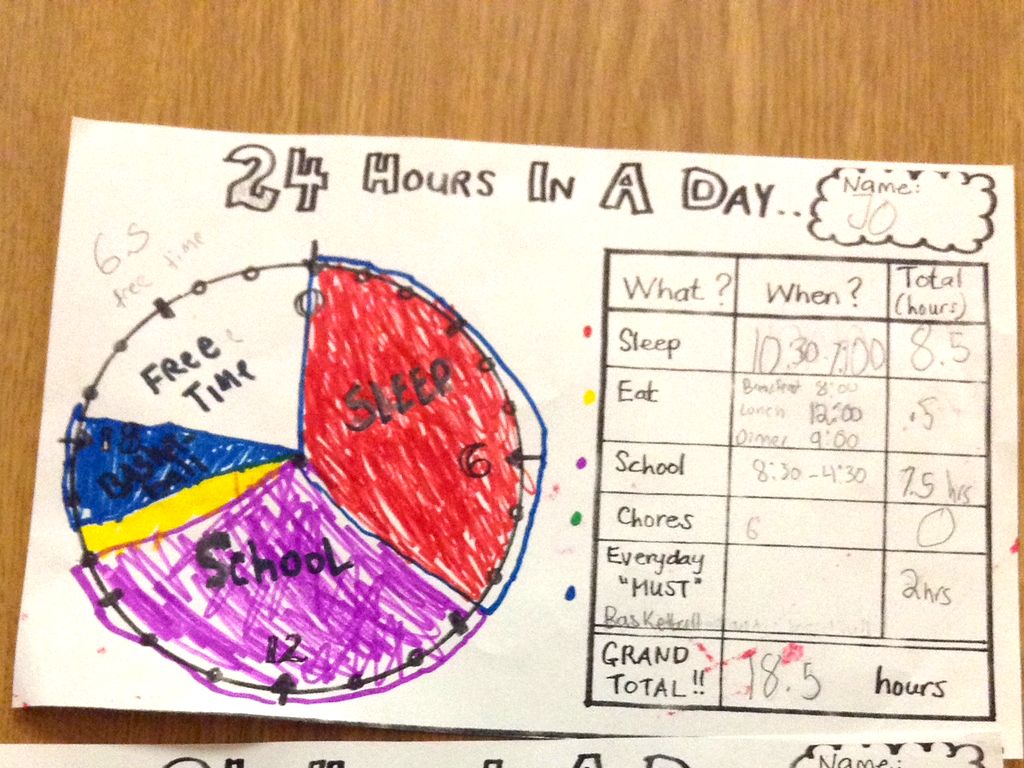 24 HOURS IN A DAY...
Name:
JO
6.5
free time
0
FREE
TIME
SLEEP
6
18
Basket
ball
School
12
What? When? Total (hours)
Sleep 10.30-7:00 8.5
Eat Breakfast 8:00 .5
Lunch 12:00
Dinner 9:00
School 8:30-4:30 7.5 hrs
Chores 6 0
Everyday
"MUST" 2hrs
Basketball
GRAND
TOTAL!! 18.5 hours
Name: